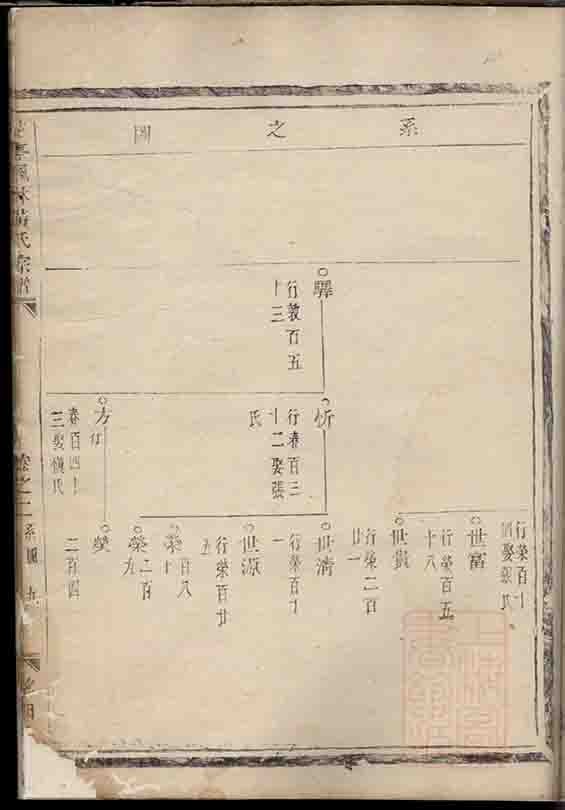 系之圖
驛
行教百五
十三
忻
行春百三
十二娶張
氏
方
春百四十
三娶慎氏
行榮百十
娶
氏
世富
行榮百五
十八
世貴
行榮二百
廿一
世清
行榮百十
一
世源
行榮百廿
五
榮
百八
十
榮
二百
九
榮
二百四
風林黃氏宗譜
卷之二
系圖
九